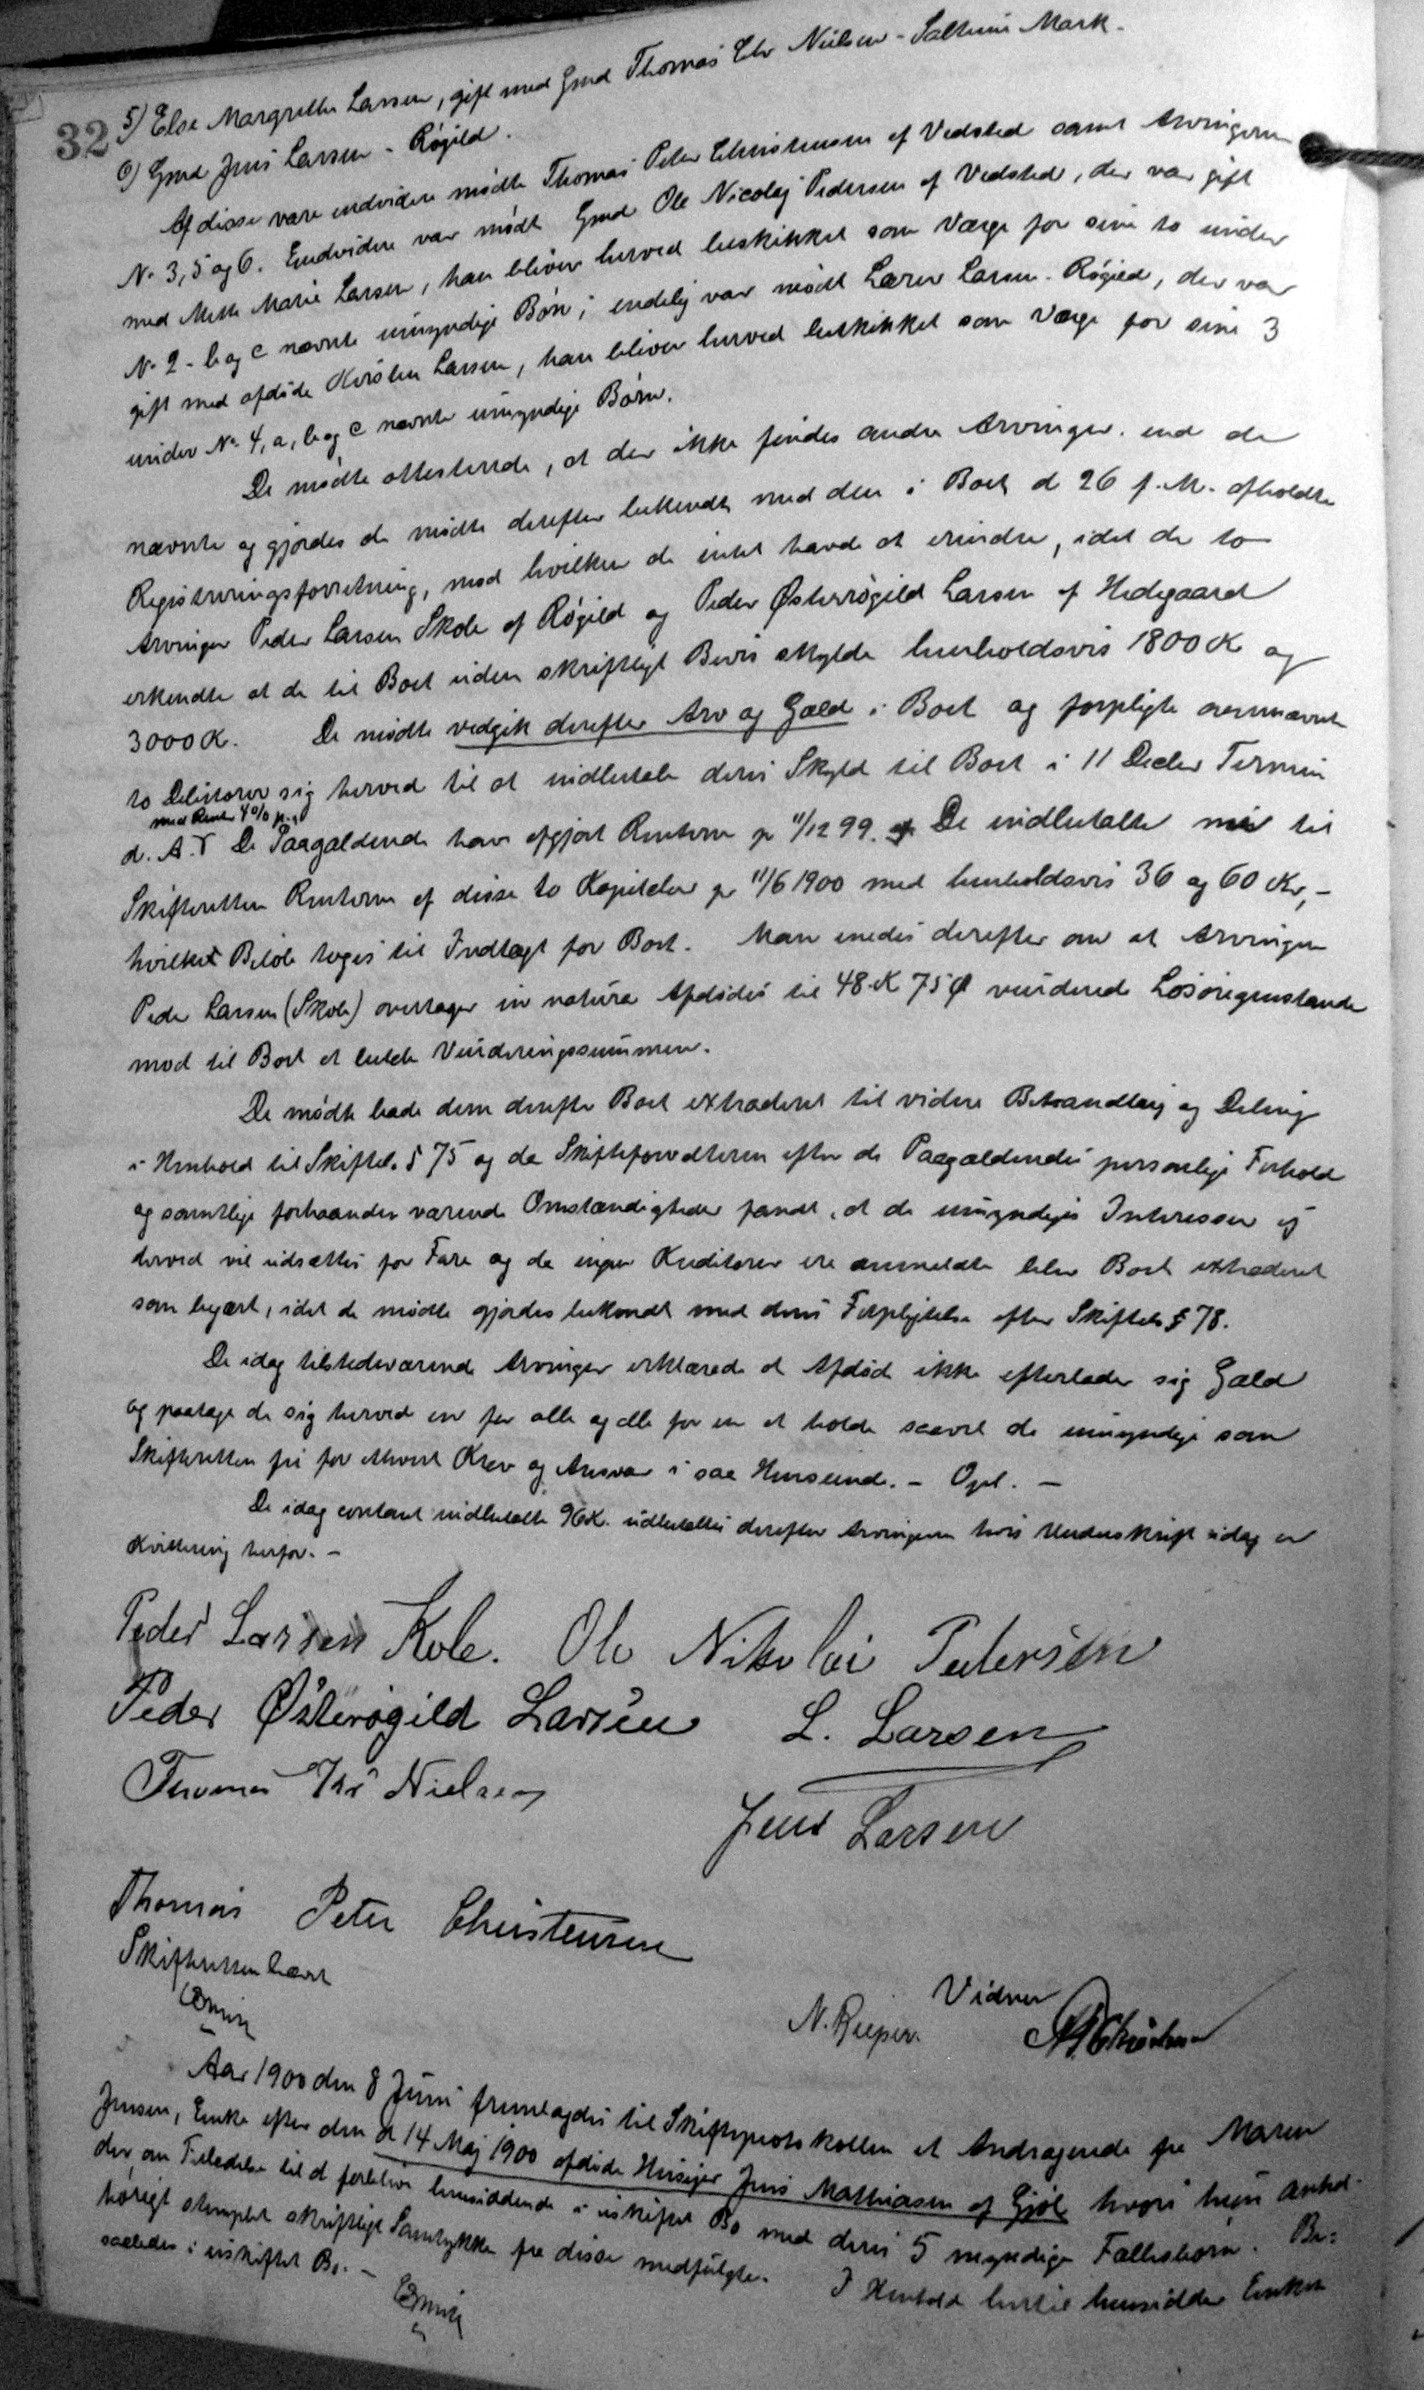 32
5) Else Margrethe Larsen, gift med Gmd Thomas Chr Nielsen - Saltum Mark.
6) Gmd Jens Larsen - Røgild.
Af disse vare endvidere mødte Thomas Peter Christensen af Vedsted samt Arvingerne
No 3, 5 og 6. Endvidere var mødt Gmd Ole Nicolaj Pedersen af Vedsted, der var gift
med Mette Marie Larsen, han bliver herved beskikket som Værge for sine to under
No 2 - b og c nævnte umyndige Børn; endelig var mødt Lærer Larsen - Røgild, der var
gift med afdøde Kirsten Larsen, han bliver herved beskikket som Værge for sine 3
under No 4, a, b og c nævnte umyndige Børn.
De mødte attesterede, at der ikke findes andre Arvinger end de
nævnte og gjordes de mødte derefter bekendt med den i Boet d 26 f. M. afholdte
Registreringsforretning, mod hvilken de intet havde at erindre, idet de to
Arvinger Peder Larsen Skole af Røgild og Peder Østerrøgild Larsen af Hedegaard
erkendte at de til Boet uden skriftligt Bevis skylde henholdsvis 1800 K og
3000 K. De mødte vedgik derefter Arv og Gæld i Boet og forpligte ovennævnte
to Debitorer sig herved til at indbetale deres Skyld til Boet i 11 Decbr Termin
med Renter 4 0/0 p. a
d. A. De Paagældende have afgjort Renterne pr 11/12 99. De indbetalte nu til
Skifteretten Renterne af disse to Kapitaler pr 11/6 1900 med henholdsvis 36 og 60 Kr, -
hvilket Beløb toges til Indtægt for Boet. Man enedes derefter om at Arvingen
Peder Larsen (Skole) overtager in natura Afdødes til 48 K 75 Ø vurderede Løsøregenstande
mod til Boet at betale Vurderingssummen.
De mødte bade dem derefter Boet extraderet til videre Behandling og Deling
i Henhold til Skiftel. § 75 og da Skifteforvalteren efter de Paagældendes personlige Forhold
og samtlige forhaanden værende Omstændigheder fandt, at de umyndiges Interesser ej
derved vil udsættes for Fare og da ingen Kreditorer ere anmeldte blev Boet extraderet
som begært, idet de mødte gjordes bekendt med deres Forpligtelse efter Skiftel. § 78.
De idag tilstedeværende Arvinger erklærede at Afdøde ikke efterlader sig Gæld
og paatage de sig herved en for alle og alle for en at holde saavel de umyndige som
Skifteretten fri for ethvert Krav og Ansvar i saa Henseende. - Opl. -
De idag contant indbetalte 96 K. udbetaltes derefter Arvingerne hvis Underskrift idag er
Kvittering herfor. -
Peder Larsen Kole. Ole Nikolai Pedersen
Peder Østerøgild Larsen L. Larsen
Thomas Chr Nielsen
Jens Larsen
Thomas Peter Christensen
Skifteretten hævet
Vidner
N. Rieper.
Aar 1900 den 8 Juni fremlagdes til Skifteprotokollen et Andragende fra Maren
Jensen, Enke efter den d 14 Maj 1900 afdøde Husejer Jens Mathiasen af Gjøl hvori hun anhol-
der om Tilladelse til at forblive hensiddende i uskiftet Bo med deres 5 myndige Fællesbørn. Be-
hørigt stemplet skriftligt Samtykke fra disse medfulgte. I Henhold hertil hensidder Enken
saaledes i uskiftet Bo. -